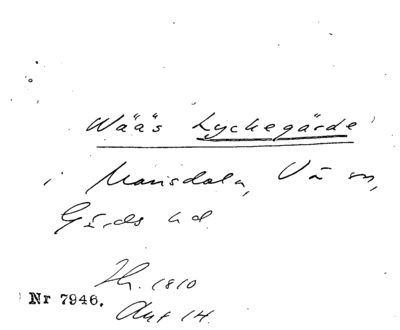 Wääs Lyckegärde
i Mansdala, Vä sn,
Gärds hd.
Th. 1810
Nr 7946.
Akt 14.